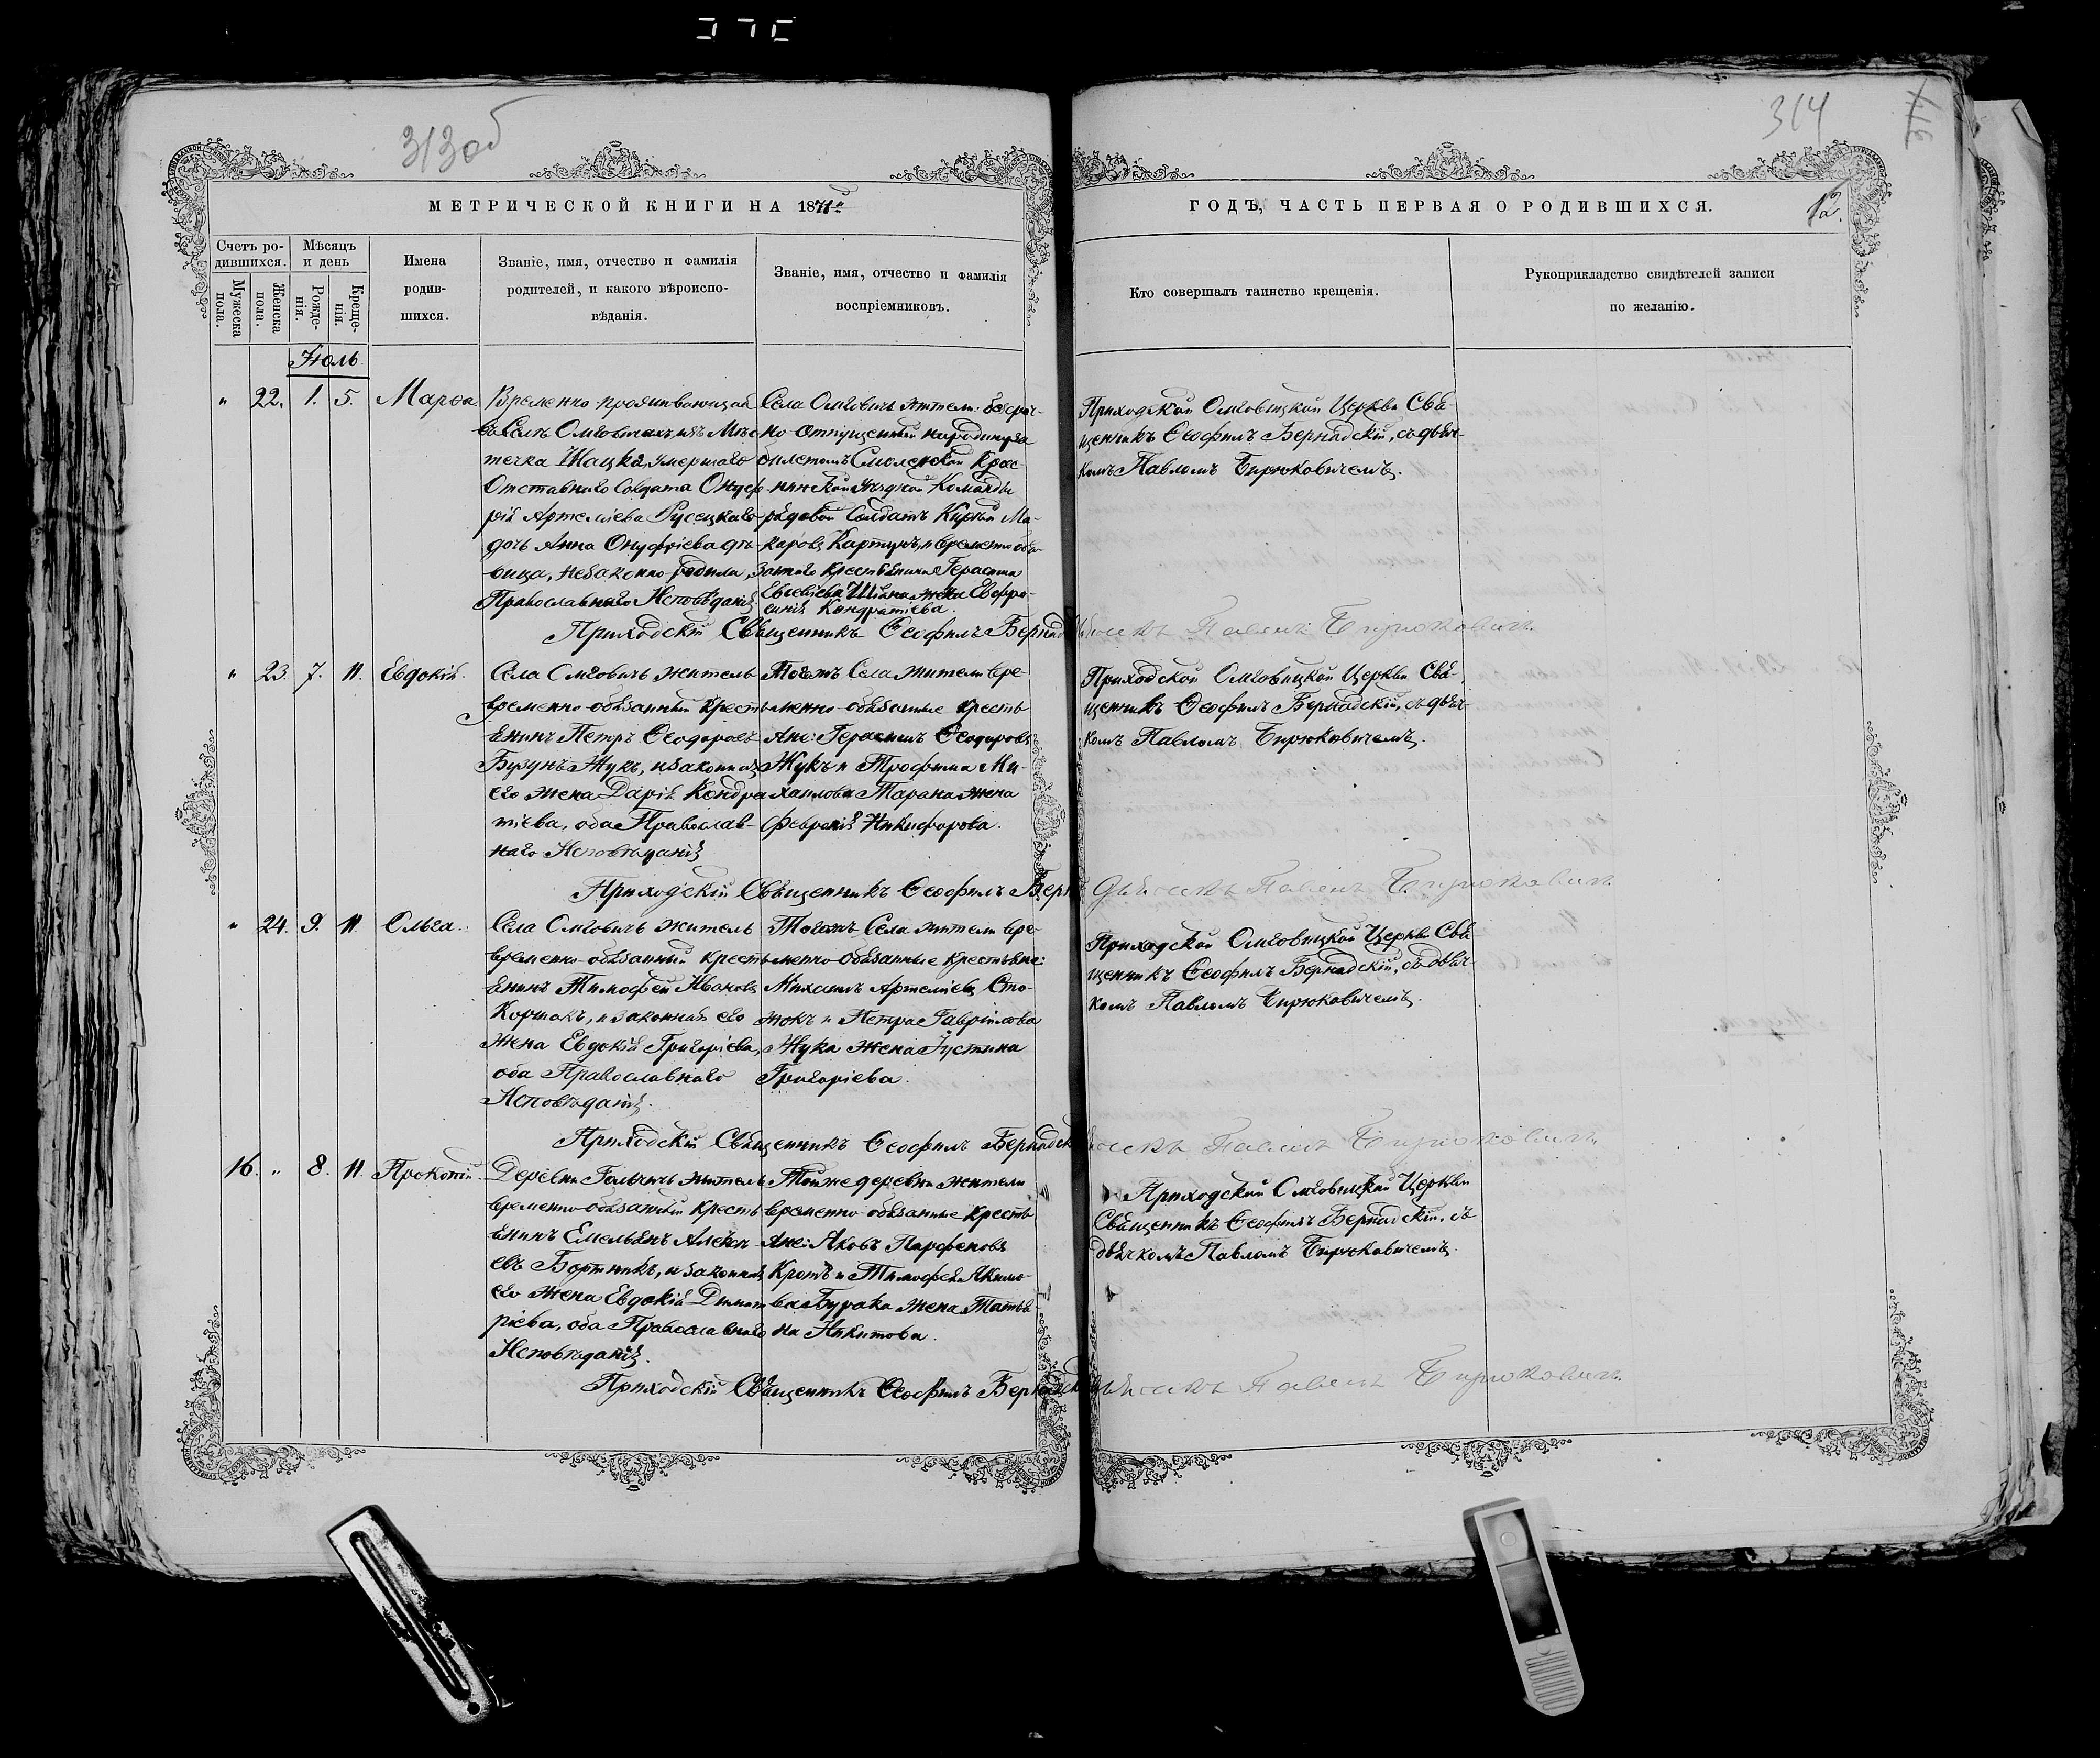 313 об
314
12.
МЕТРИЧЕСКОЙ КНИГИ НА 1871й
ГОДЪ, ЧАСТЬ ПЕРВАЯ О РОДИВШИХСЯ.
Счетъ ро-
дившихся.
Мужеска
пола.
Женска
пола.
Мѣсяцъ
и день
Рожде-
нія.
Креще-
нія.
Имена
родив-
шихся.
Званіе, имя, отчество и фамилія
родителей, и какого вѣроиспо-
вѣданія.
Званіе, имя, отчество и фамилія
воспріемниковъ.
Кто совершалъ таинство крещенія.
Рукоприкладство свидѣтелей записи
по желанію.
Іюль.
" 22. 1. 5. Марѳа
Временно проживающая
въ Селѣ Омговичахъ изъ Мѣс
течка Шацка, умершаго
Отставнаго Солдата Онуф
рія Артеміева Русецкаго
дочь Анна Онуфріева дѣ-
вица, незаконно родила,
Православнаго Исповѣданія
Села Омговичъ жители: безсроч-
но-отпущенный на родину
билетомъ Смоленской Крас-
нинской Уѣздной Команды
рядовой Солдатъ Ма-
каровъ и временно обя-
заннаго крестьянина Герасима
жена Евфро-
синія Кондратіева.
Приходской Омговицкой Церкви Свя-
щенникъ Ѳеофилъ Бернадскій, съ дьяч-
комъ Павломъ Бирюковичемъ.
Приходскій Священникъ Ѳеофилъ Бернад
Павелъ Бирюковичъ.
" 23. 7. 11. Евдокія.
Села Омговичъ житель
временно-обязанный кресть
янинъ Петръ Ѳеодоровъ
Бузунъ Жукъ, и законная
его жена Дарія Кондра
тіева, оба Православ-
наго Исповѣданія
Тогожъ Села жители вре-
менно-обязанные кресть
яне: Герасимъ Ѳеодоровъ
Жукъ и Трофима Ми-
хаилова Тарана жена
Февронія Никифорова.
Приходской Омговицкой Церкви Свя-
щенникъ Ѳеофилъ Бернадскій, съ дьяч-
комъ Павломъ Бирюковичемъ.
Приходскій Священникъ Ѳеофилъ Берн
Дьячекъ Павелъ Бирюковичъ.
" 24. 9. 11. Ольга.
Села Омговичъ житель
временно-обязанный кресть
янинъ Тимофей Ивановъ
Коршакъ, и законная его
жена Евдокія Григоріева,
оба Православнаго
Исповѣданія.
Тогожъ Села жители вре-
менно-обязанные крестьяне:
Михаилъ Артеміевъ Сто-
жокъ и Петра Гавріилова
Жука жена Іустина
Григоріева.
Приходской Омговицкой Церкви Свя
щенникъ Ѳеофилъ Бернадскій, съ дьяч
комъ Павломъ Бирюковичемъ.
Приходскій Священникъ Ѳеофилъ Бернадск
Павелъ Бирюковичъ.
16. " 8. 11. Прокопій.
Деревни житель
временно-обязанный кресть
янинъ Емельянъ Алексѣ
евъ Бортникъ, и законная
его жена Евдокія Димит
ріева, оба Православнаго
Исповѣданія.
Тойже деревни жители
временно-обязанные кресть
яне: Яковъ Парфеновъ
Кротъ и Тимофея Якимо-
ва Бурака жена Татья-
на Никитова.
Приходской Омговицкой Церкви
Священникъ Ѳеофилъ Бернадскій, съ
дьячкомъ Павломъ Бирюковичемъ.
Приходскій Священникъ Ѳеофилъ Бернадск
Дьячекъ Павелъ Бирюковичъ.